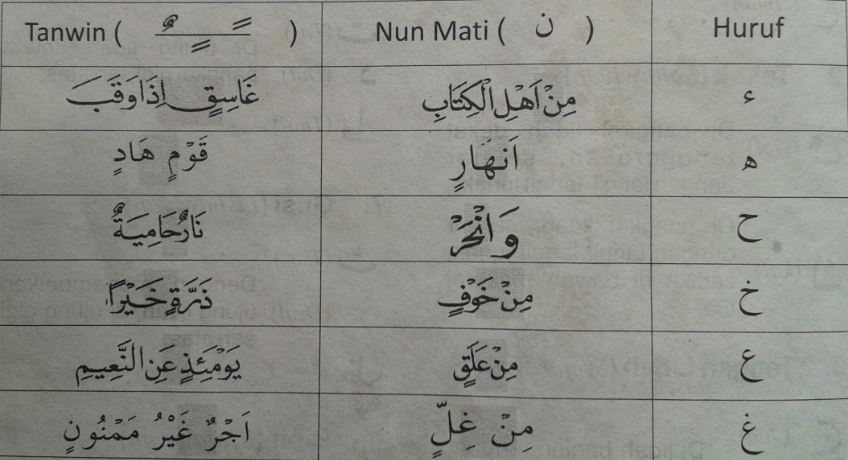 Tanwin ( ــًــٍــٌ ) Nun Mati ( ن ) Huruf
غَاسِقٍ اِذَا وَقَبَ مِنْ اَهْلِ الْكِتَابِ ء
قَوْمٍ هَادٍ اَنْهَارٍ ه
نَارٌ حَامِيَةٌ وَانْحَرْ ح
ذَرَّةٍ خَيْرًا مِنْ خَوْفٍ خ
يَوْمَئِذٍ عَنِ النَّعِيمِ مِنْ عَلَقٍ ع
اَجْرٌ غَيْرُ مَمْنُونٍ مِنْ غِلٍّ غ